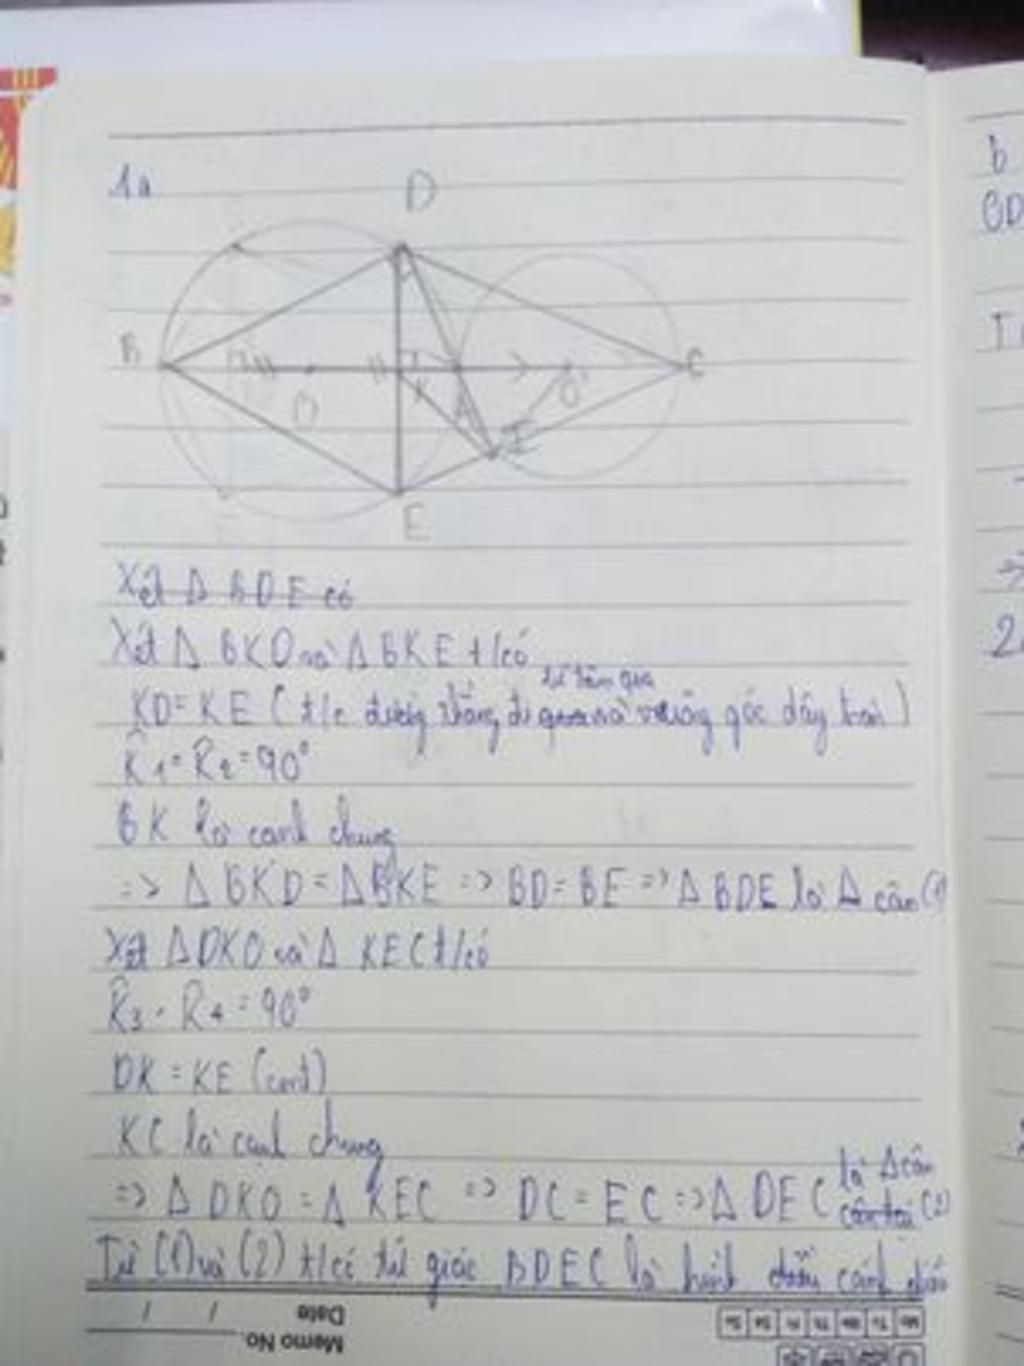 1a
D
B
C
O
K
A
O'
I
E
Xét Δ BDE có
Xét Δ BKD và Δ BKE t/có
từ tâm qua
KD = KE ( t/c đường thẳng đi và vuông góc dây )
K1 = K2 = 90°
BK là cạnh chung
=> Δ BKD = Δ BKE => BD = BE => Δ BDE là Δ cân (1)
Xét Δ DKC và Δ KEC t/có
K3 = K4 = 90°
DK = KE (cmt)
KC là cạnh chung
là Δ cân
=> Δ DKC = Δ KEC => DC = EC => Δ DEC cân tại (2)
Từ (1) và (2) t/có tứ giác BDEC là hình
Date / /
Memo No.
Mo Tu We Th Fr Sa Su
b
2